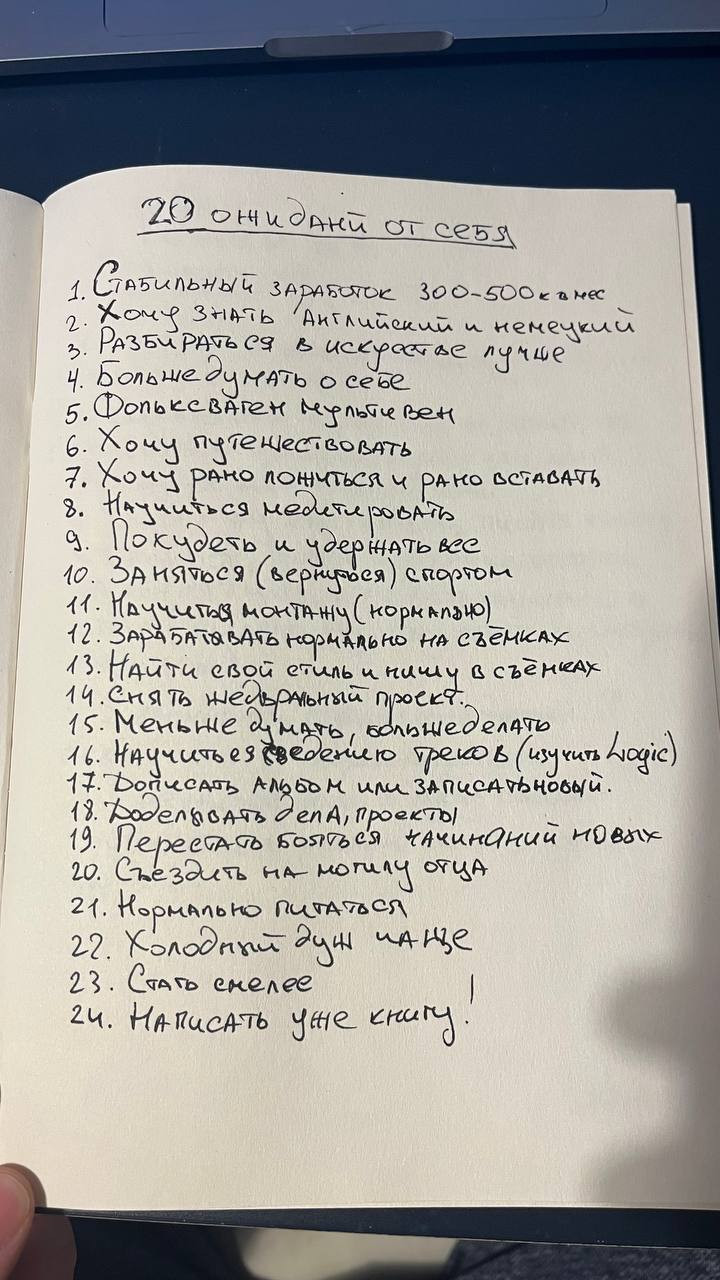 20 ожиданй от себя
1. Стабильный заработок 300-500к в мес
2. Хочу знать Английский и немецкий
3. Разбираться в искусстве лучше
4. Больше думать о себе
5. Фольксваген мультивен
6. Хочу путешествовать
7. Хочу рано ложиться и рано вставать
8. Научиться медитировать
9. Похудеть и удержать вес
10. Заняться (вернуться) спортом
11. Научиться монтажу (нормально)
12. Зарабатывать нормально на съёмках
13. Найти свой стиль и нишу в съёмках
14. Снять шедевральный проект.
15. Меньше думать, больше делать
16. Научиться сведению треков (изучить Logic)
17. Дописать альбом или записать новый.
18. Доделывать дела, проекты
19. Перестать бояться начинаний новых
20. Съездить на могилу отца
21. Нормально питаться
22. Холодный душ чаще
23. Стать смелее
24. Написать уже книгу!